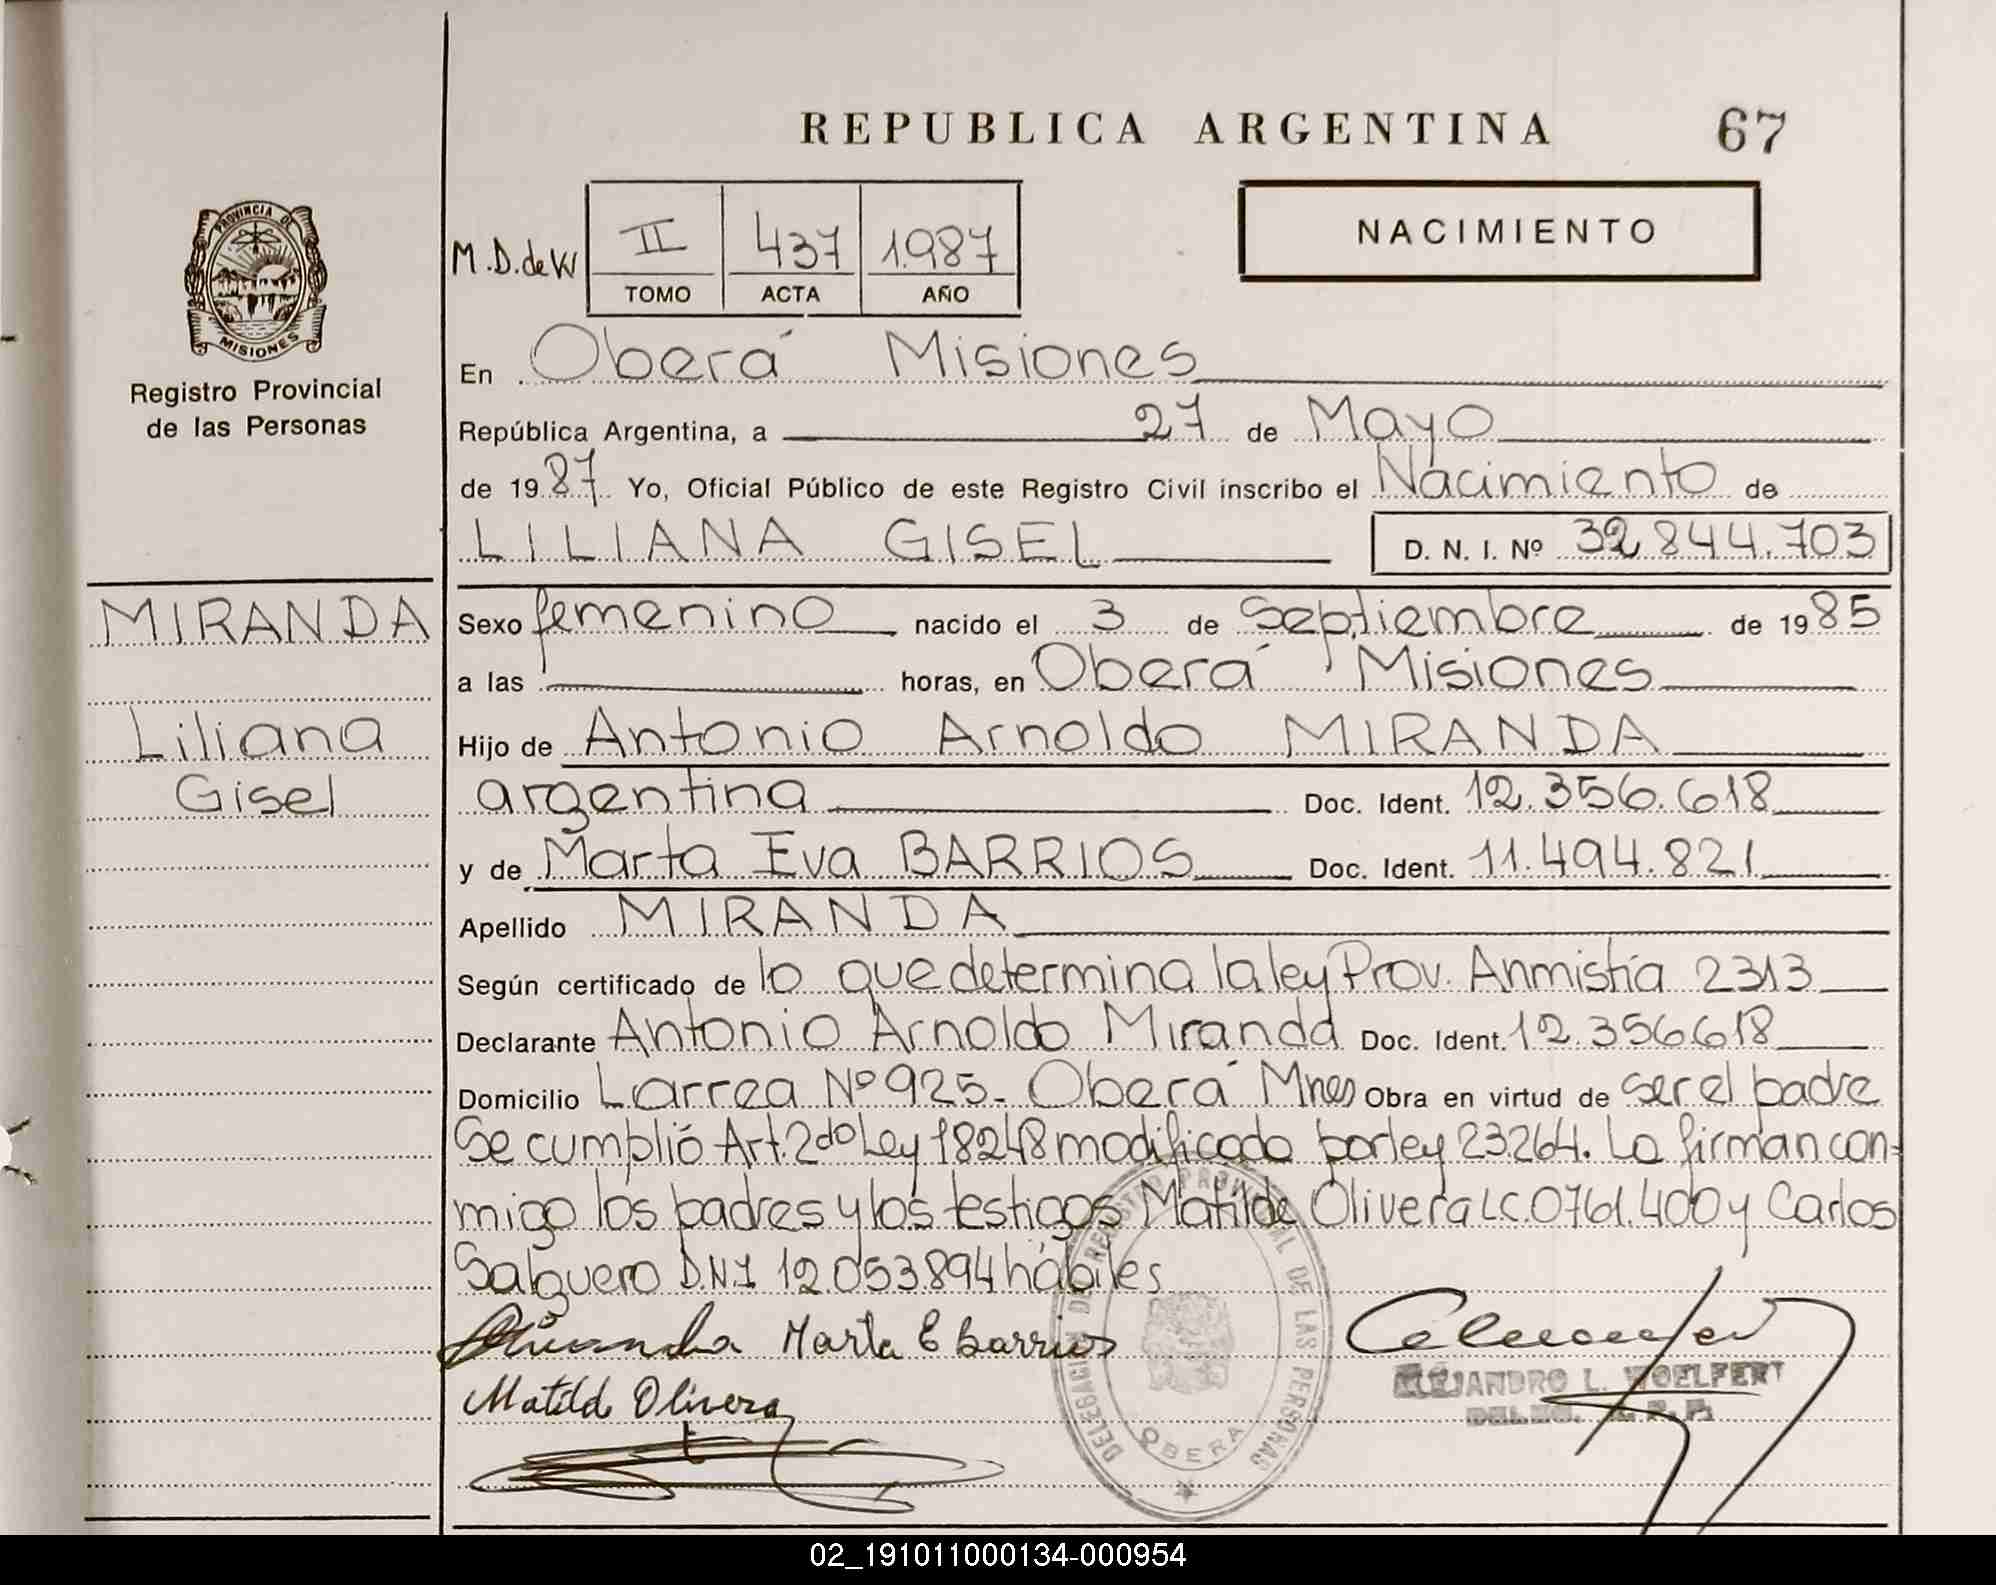 REPUBLICA ARGENTINA 67
PROVINCIA DE
MISIONES
Registro Provincial
de las Personas
M.D.de W
II 437 1.987
TOMO ACTA AÑO
NACIMIENTO
En Oberá Misiones
República Argentina, a 27 de Mayo
de 1987 Yo, Oficial Público de este Registro Civil inscribo el Nacimiento de
LILIANA GISEL D. N. I. Nº 32.844.703
MIRANDA
Liliana
Gisel
Sexo femenino nacido el 3 de Septiembre de 1985
a las horas, en Oberá Misiones
Hijo de Antonio Arnoldo MIRANDA
argentina Doc. Ident. 12.356.618
y de Marta Eva BARRIOS Doc. Ident. 11.494.821
Apellido MIRANDA
Según certificado de lo que determina la ley Prov. Anmistía 2313
Declarante Antonio Arnoldo Miranda Doc. Ident. 12.356618
Domicilio Larrea Nº 925- Oberá Mnes Obra en virtud de ser el padre
Se cumplió Art. 2do Ley 18248 modificado por ley 23264. Lo firman con-
migo los padres y los testigos Matilde Olivera LC.0761.400 y Carlos
Salguero D.N.I 12.053.894 hábiles
Miranda Marta E Barrios
Matild Olivera
DELEGACION DEL REGISTRO PROVINCIAL DE LAS PERSONAS
OBERA
ALEJANDRO L. WOELFERT
02_191011000134-000954